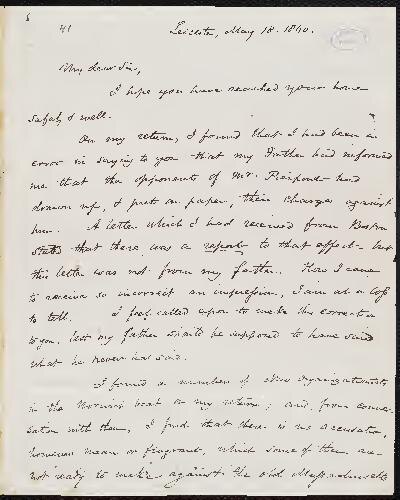 6
41
Leicester, May 18. 1840.
My dear Sir,
I hope you have reached your home
safely & well.
On my return, I found that I had been in
error in saying to you that my Father had informed
me that the opponents of Mr. Pierpont had
drawn up, & put on paper, their charges against
him. A letter which I had received from Boston
stated that there was a report to that effect - but
this letter was not from my father. How I came
to receive so incorrect an impression, I am at a loss
to tell. I feel called upon to make this correction
to you, lest my father should be supposed to have said
what he never has said.
I found a number of New Organizationists
in the Norwich boat on my return; and, from conver-
sation with them, I find that there is no accusation,
however mean or flagrant, which some of them are
not ready to make against the old Massachusetts